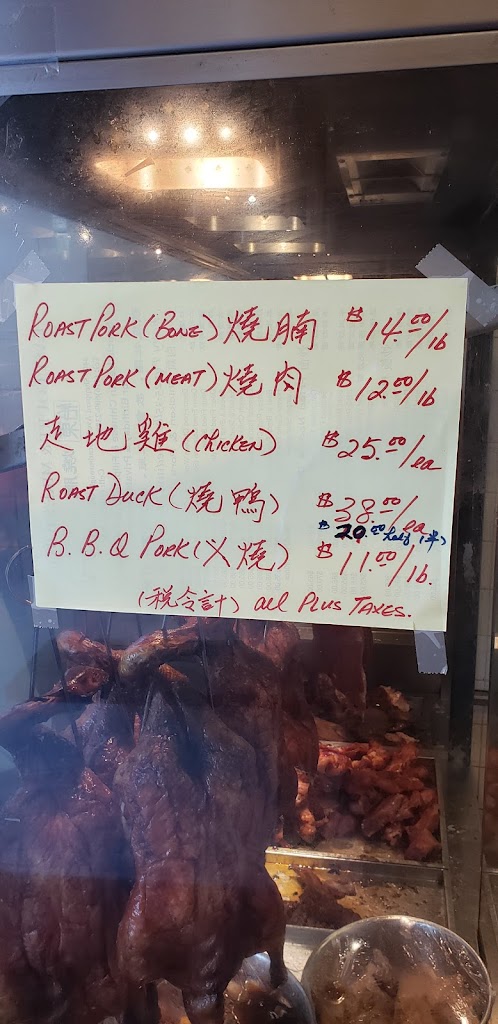 ROAST PORK (BONE) 燒腩 $14.00/lb
ROAST PORK (MEAT) 燒肉 $12.00/lb
走地雞 (CHICKEN) $25.00/ea
ROAST DUCK (燒鴨) $38.00/ea
$20.00 half (半)
B.B.Q PORK (义燒) $11.00/lb.
(稅令計) all PLUS TAXES.